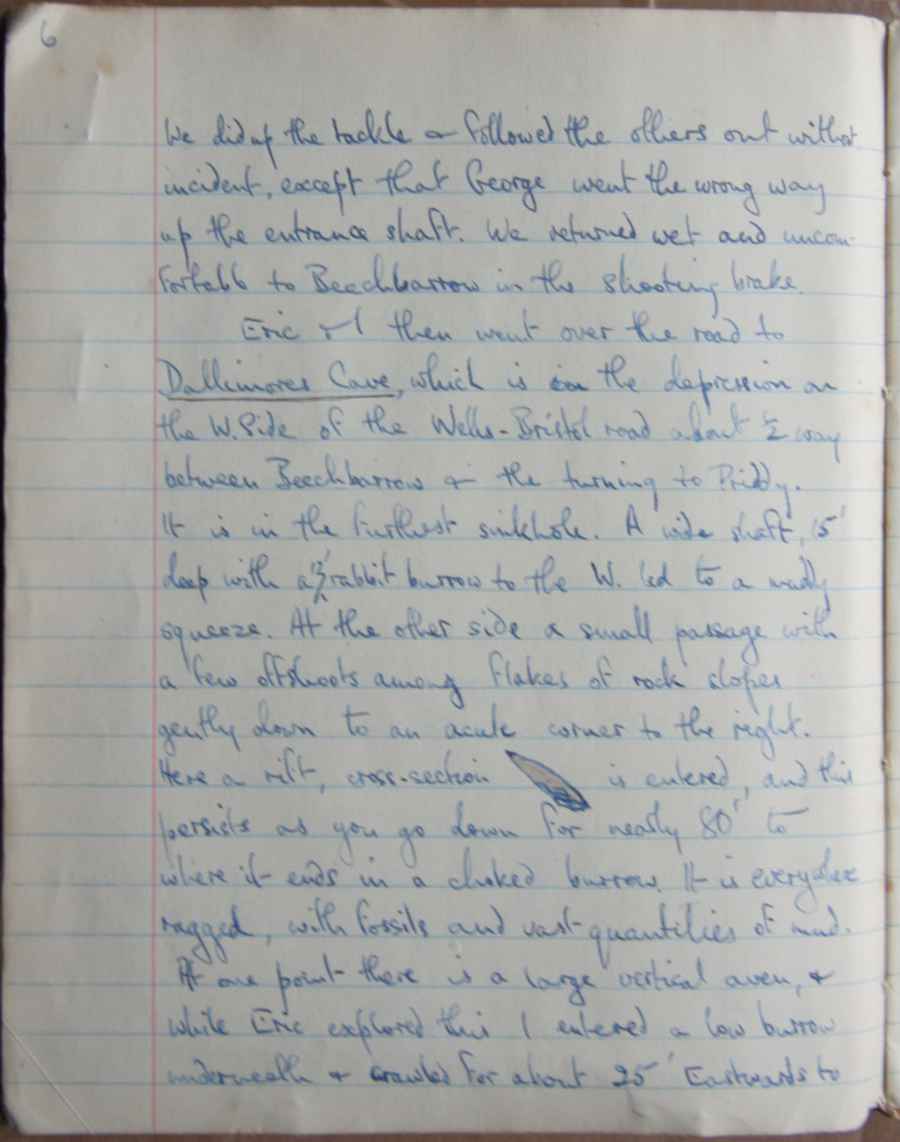 6
We did up the tackle & followed the others out without
incident, except that George went the wrong way
up the entrance shaft. We returned wet and uncom-
fortable to Beechbarrow in the shooting brake.
Eric & I then went over the road to
Dallimores Cave, which is in the depression on
the W. Side of the Wells-Bristol road about ½ way
between Beechbarrow & the turning to Priddy.
It is in the furthest sinkhole. A wide shaft, 15'
deep with a 3' rabbit burrow to the W. led to a muddy
squeeze. At the other side a small passage with
a few offshoots among flakes of rock slopes
gently down to an acute corner to the right.
Here a rift, cross-section is entered, and this
persists as you go down for nearly 80' to
where it ends in a choked burrow. It is everywhere
ragged, with fossils and vast quantities of mud.
At one point there is a large vertical aven, &
while Eric explored this I entered a low burrow
underneath & crawled for about 25' Eastwards to